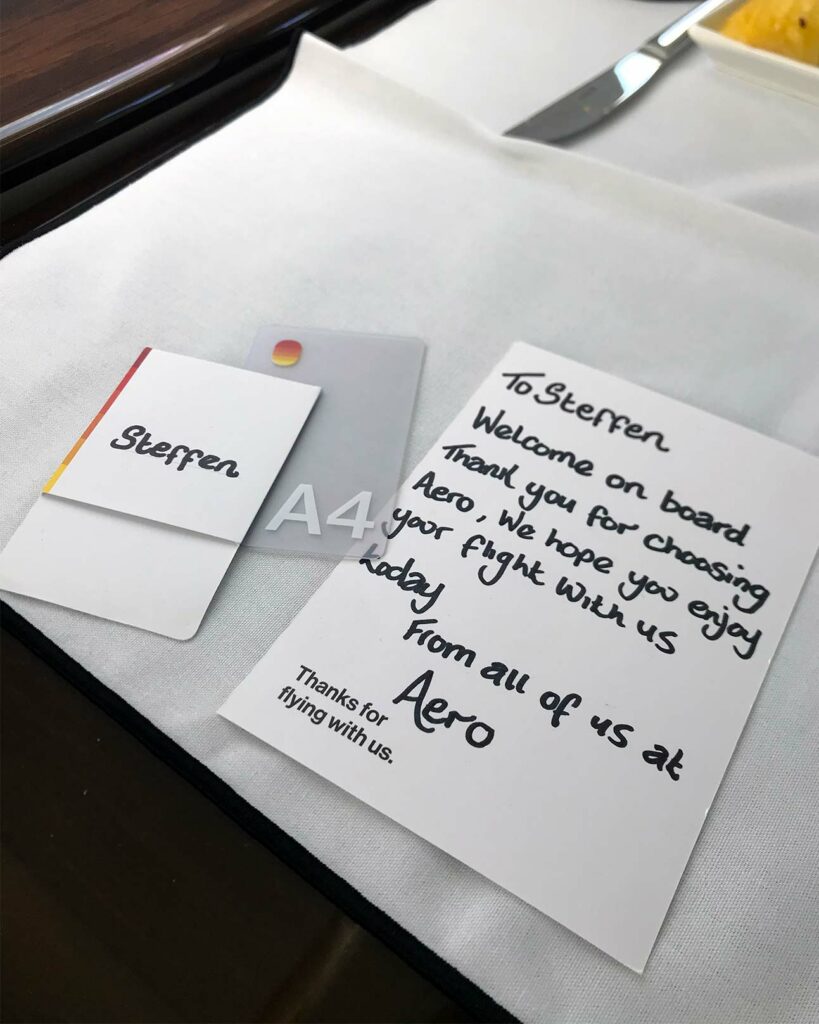 Steffen
A4
To Steffen
Welcome on board
Thank you for choosing
Aero, We hope you enjoy
your flight With us
today
From all of us at
Aero
Thanks for
flying with us.